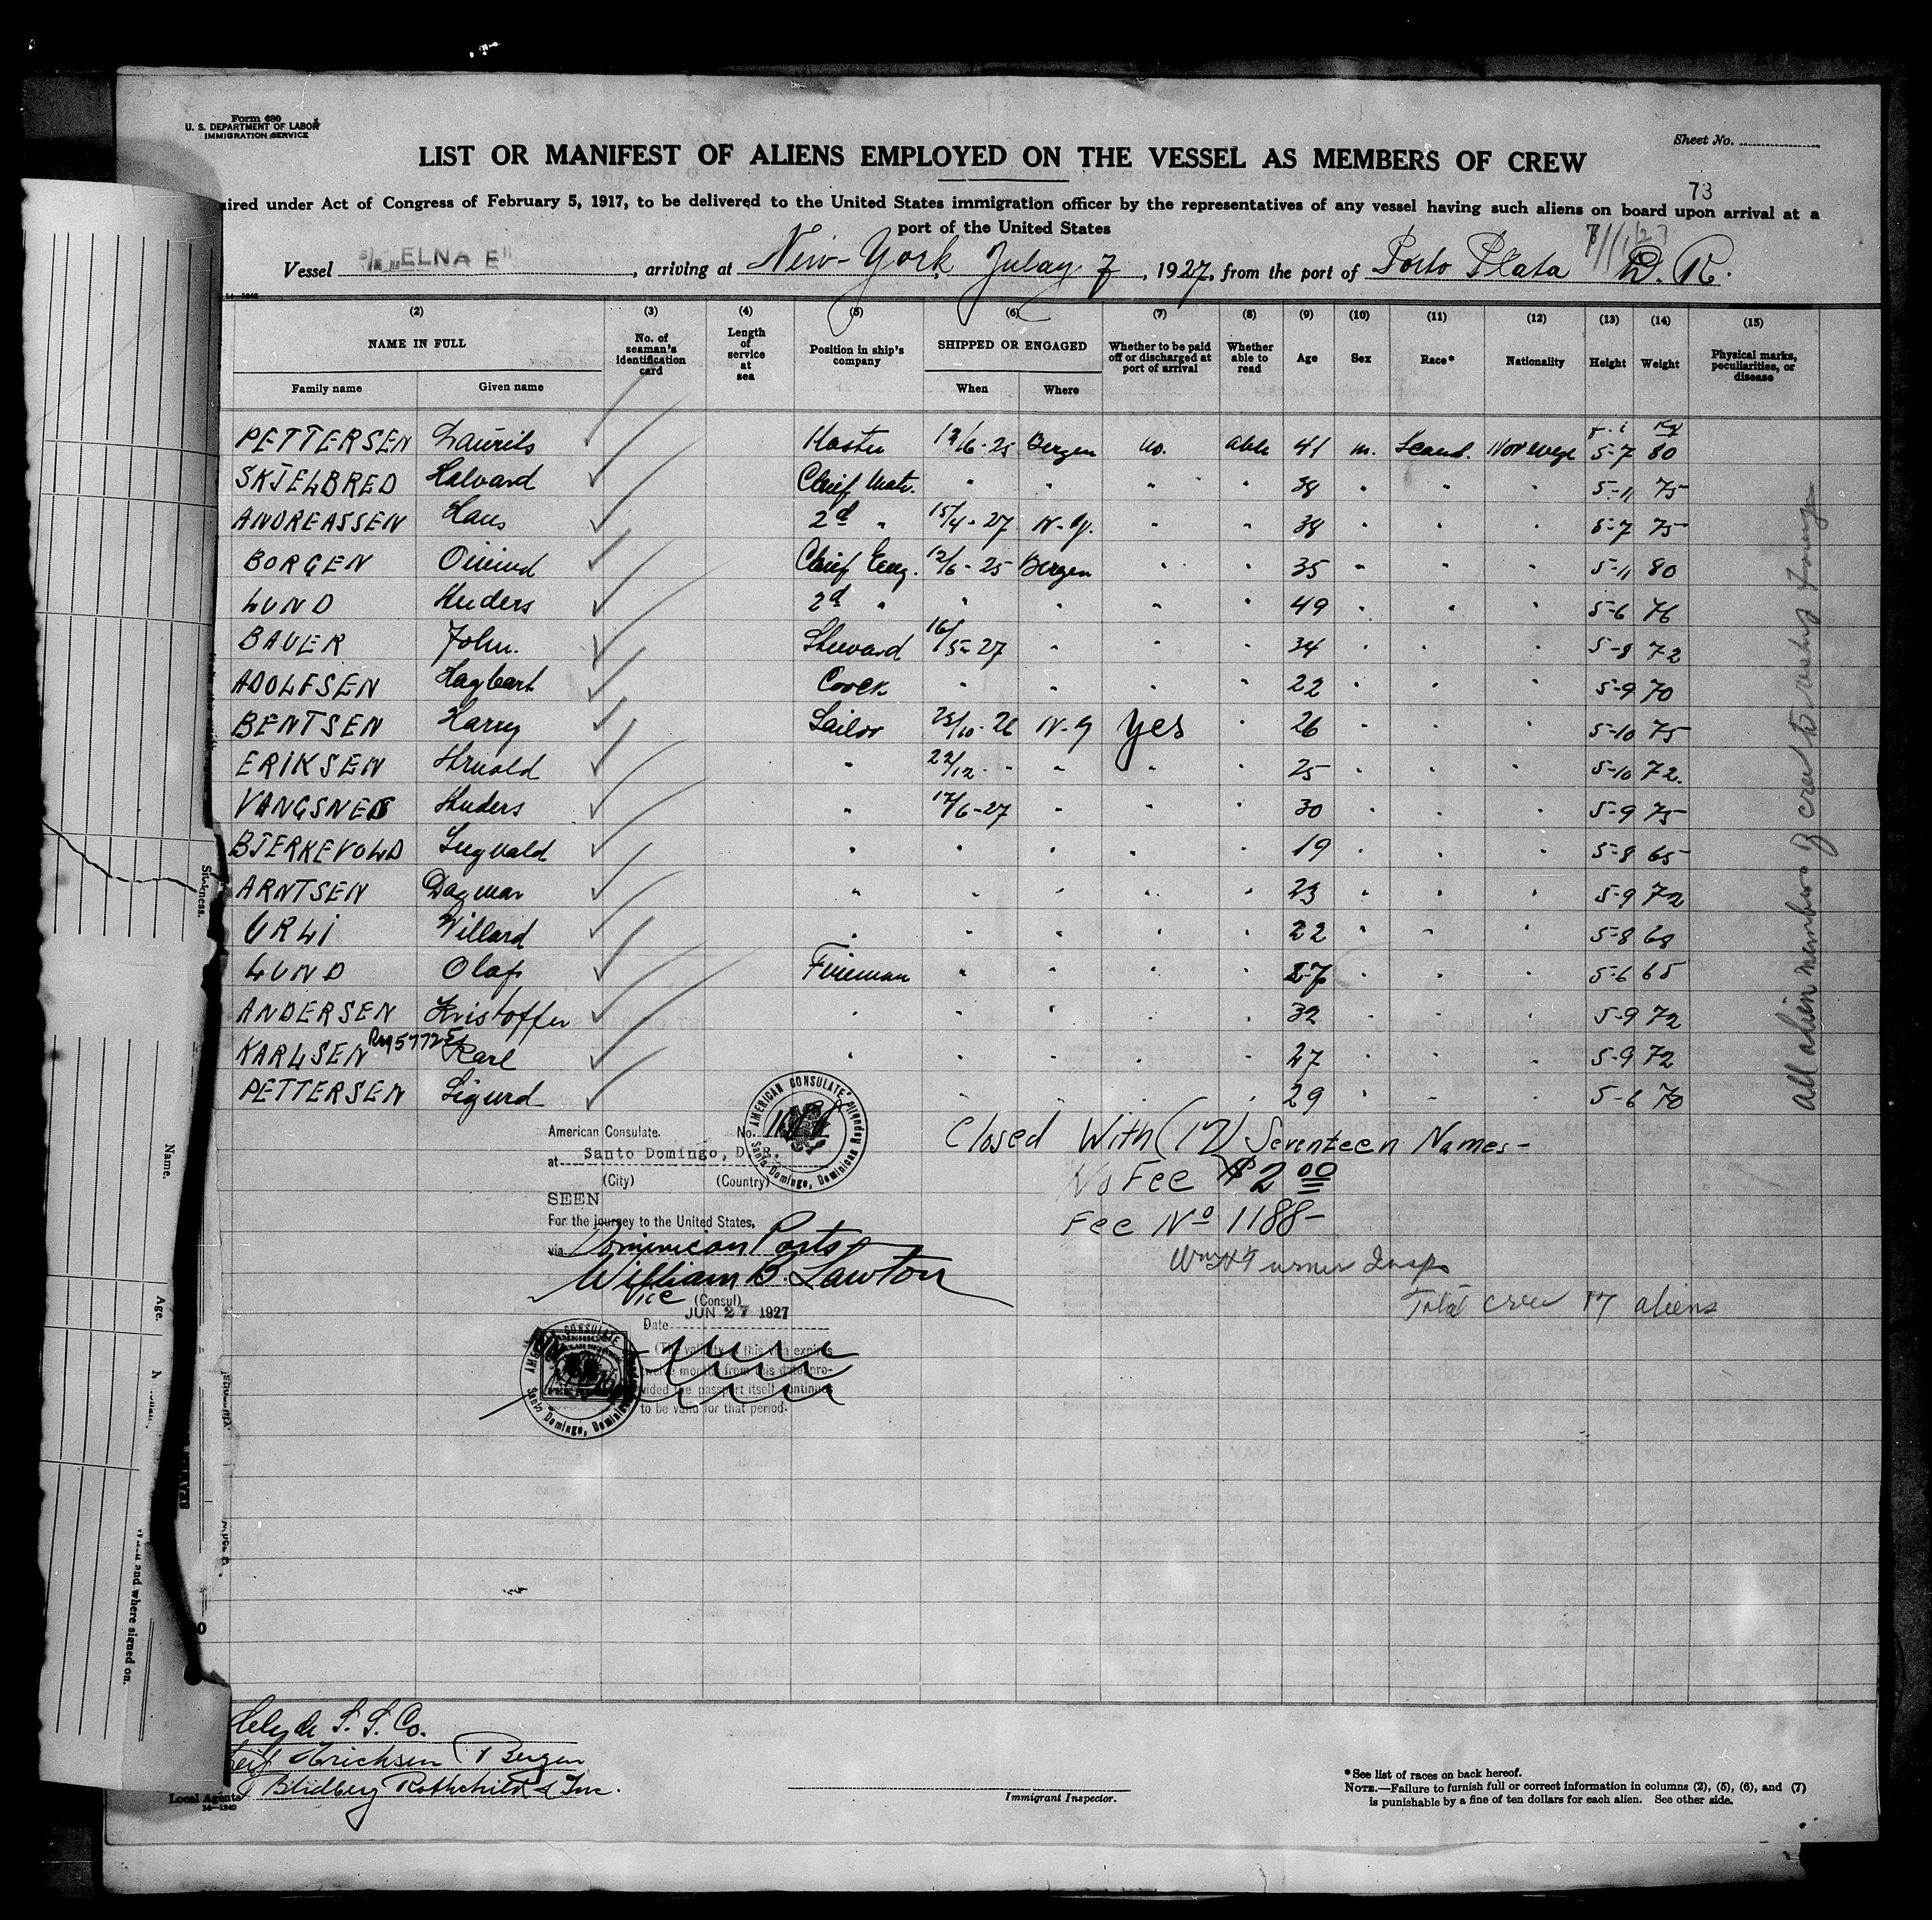 Form 680
U. S. DEPARTMENT OF LABOR
IMMIGRATION SERVICE
Sheet No.
LIST OR MANIFEST OF ALIENS EMPLOYED ON THE VESSEL AS MEMBERS OF CREW
73
uired under Act of Congress of February 5, 1917, to be delivered to the United States immigration officer by the representatives of any vessel having such aliens on board upon arrival at a
port of the United States
Vessel S/S "ELNA E", arriving at New-York Julay 7, 1927, from the port of Porto Plata D. R.
14—1240
(2) (3) (4) (5) (6) (7) (8) (9) (10) (11) (12) (13) (14) (15)
NAME IN FULL No. of seaman's identification card Length of service at sea Position in ship's company SHIPPED OR ENGAGED Whether to be paid off or discharged at port of arrival Whether able to read Age Sex Race* Nationality Height Weight Physical marks, peculiarities, or disease
Family name Given name When Where
Kg
PETTERSEN Laurits Master 12/6-25 Bergen no. able 41 m. Scand. Norwege 5-7 80
SKJELBRED Halvard Chief Mate. " " " " 38 " " " 5-11 75
ANDREASSEN Hans 2d " 15/4-27 N-Y. " " 38 " " " 5-7 75
BORGEN Oivind Chief Eng. 12/6-25 Bergen " " 35 " " " 5-11 80
LUND Anders 2d " " " " " 49 " " " 5-6 76
BAUER John. Steward 16/5-27 " " " 34 " " " 5-8 72
ADOLFSEN Hagbart Coock " " " " 22 " " " 5-9 70
BENTSEN Harry Sailor 23/10-26 N-Y yes " 26 " " " 5-10 75
ERIKSEN Arnold " 22/12 - " " " " 25 " " " 5-10 72.
VANGSNES Anders " 17/6-27 " " " 30 " " " 5-9 75
BJERKEVOLD Ingvald " " " " " 19 " " " 5-8 65
ARNTSEN Dagmar " " " " " 23 " " " 5-9 72
URLI Villard " " " " " 22 " " " 5-8 68
LUND Olaf Fireman " " " " 27 " " " 5-6 65
ANDERSEN Kristoffer " " " " " 32 " " " 5-9 72
KARLSEN Karl " " " " " 27 " " " 5-9 72
PETTERSEN Sigurd " " " " " 29 " " " 5-6 70
AMERICAN CONSULATE
Santo Domingo, Dominican Republic
American Consulate. No.
at Santo Domingo, D. R.
(City) (Country)
SEEN
For the journey to the United States,
via Dominican Ports
William B. Lawton
Vice (Consul)
JUN 27 1927
Date
(The validity of this visa expires
twelve months from this date pro-
vided the passport itself continues
to be valid for that period.
Closed With (17) Seventeen Names-
No Fee $2 00
Fee No 1188-
Wm H Turner Insp
Total crew 17 aliens
All alien members of crew
Sickness.
Name.
Age.
and where signed on.
Clyde S. S. Co.
Erichsen Bergen
Blidberg Rothchild & Inc.
Local Agents
14—1240
Immigrant Inspector.
* See list of races on back hereof.
NOTE.—Failure to furnish full or correct information in columns (2), (5), (6), and (7)
is punishable by a fine of ten dollars for each alien. See other side.